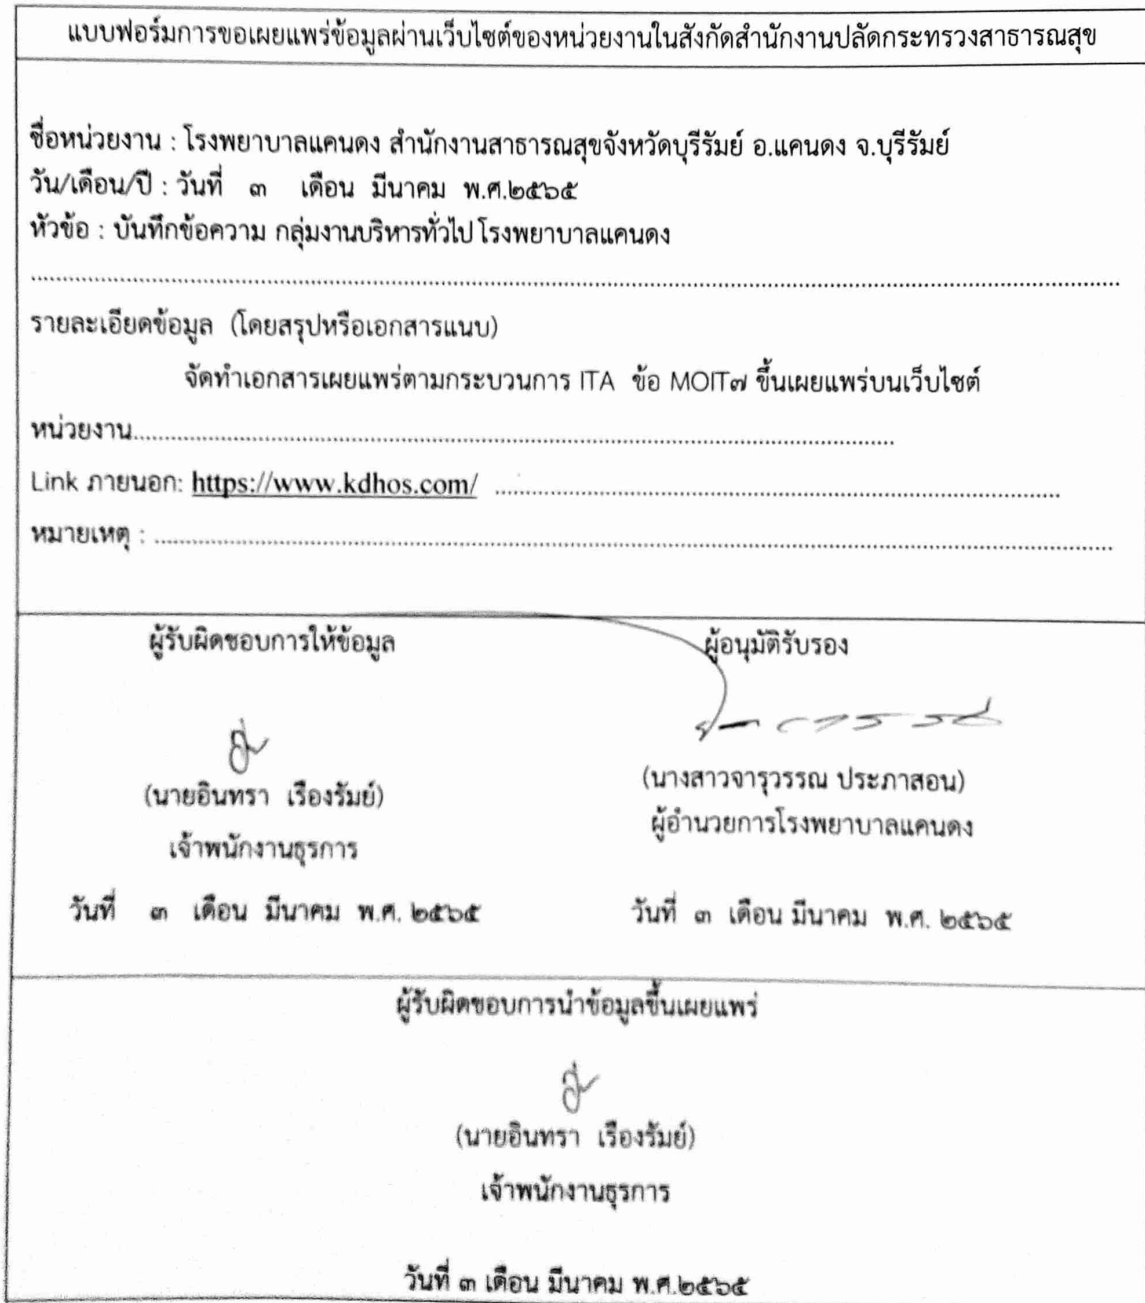 แบบฟอร์มการขอเผยแพร่ข้อมูลผ่านเว็บไซต์ของหน่วยงานในสังกัดสำนักงานปลัดกระทรวงสาธารณสุข
ชื่อหน่วยงาน : โรงพยาบาลแคนดง สำนักงานสาธารณสุขจังหวัดบุรีรัมย์ อ.แคนดง จ.บุรีรัมย์
วัน/เดือน/ปี : วันที่ ๓ เดือน มีนาคม พ.ศ.๒๕๖๕
หัวข้อ : บันทึกข้อความ กลุ่มงานบริหารทั่วไป โรงพยาบาลแคนดง
รายละเอียดข้อมูล (โดยสรุปหรือเอกสารแนบ)
จัดทำเอกสารเผยแพร่ตามกระบวนการ ITA ข้อ MOIT๗ ขึ้นเผยแพร่บนเว็บไซต์
หน่วยงาน
Link ภายนอก: https://www.kdhos.com/
หมายเหตุ :
ผู้รับผิดชอบการให้ข้อมูล
ผู้อนุมัติรับรอง
(นายอินทรา เรืองรัมย์)
(นางสาวจารุวรรณ ประภาสอน)
เจ้าพนักงานธุรการ
ผู้อำนวยการโรงพยาบาลแคนดง
วันที่ ๓ เดือน มีนาคม พ.ศ. ๒๕๖๕
วันที่ ๓ เดือน มีนาคม พ.ศ. ๒๕๖๕
ผู้รับผิดชอบการนำข้อมูลขึ้นเผยแพร่
(นายอินทรา เรืองรัมย์)
เจ้าพนักงานธุรการ
วันที่ ๓ เดือน มีนาคม พ.ศ.๒๕๖๕